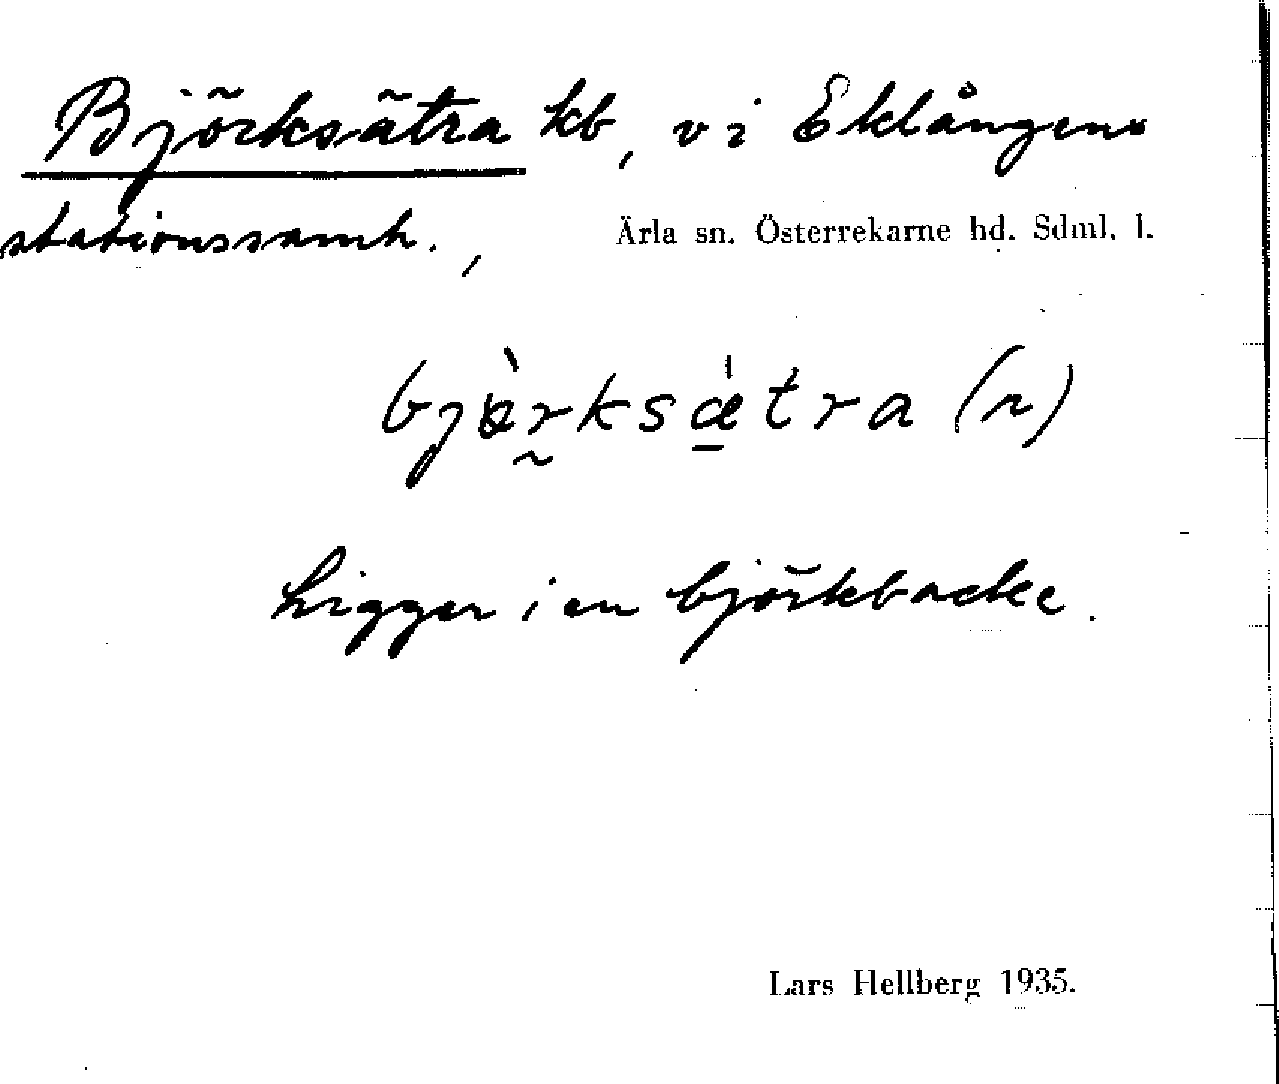 Björksätra kb, vi Eklångens
stationssamh.,
Ärla sn. Österrekarne hd. Sdml. l.
bjö̀r̰ksæ̠̍tra (n)
Ligger i en björkbacke.
Lars Hellberg 1935.